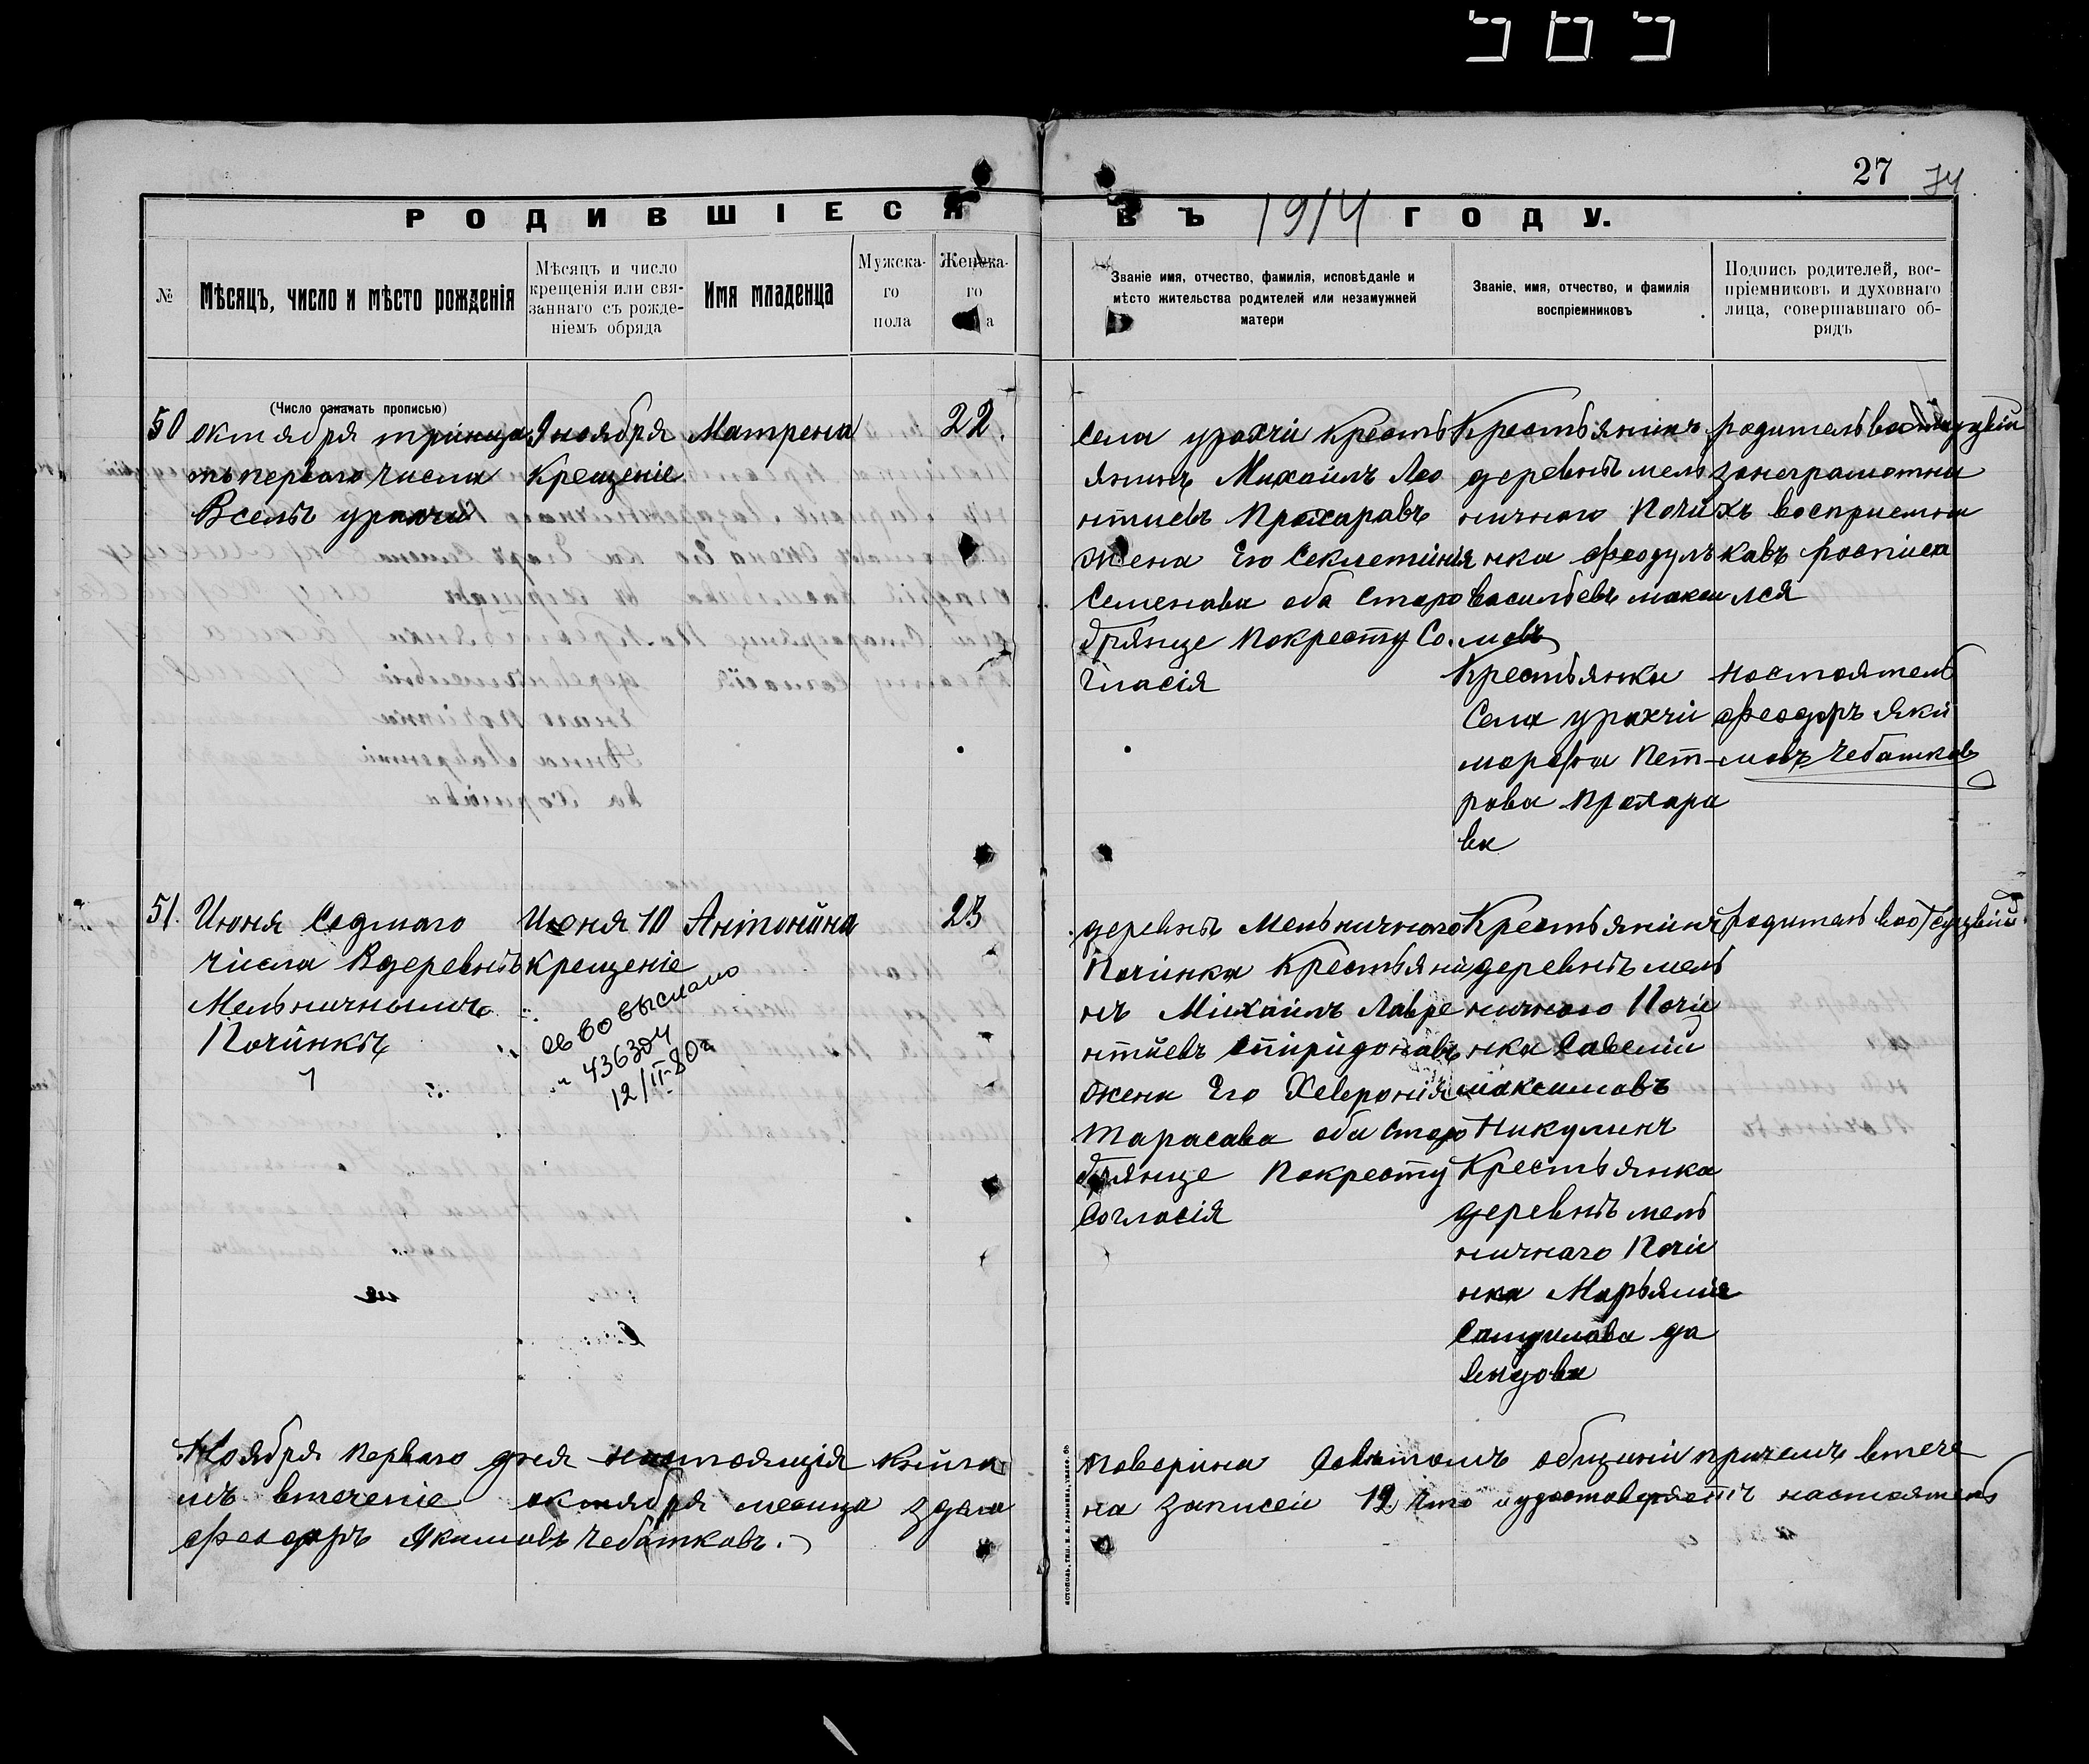 27 74
РОДИВШІЕСЯ ВЪ 1914 ГОДУ.
№
Мѣсяцъ, число и мѣсто рожденія
Мѣсяцъ и число
крещенія или свя-
заннаго съ рожде-
ніемъ обряда
Имя младенца
Мужска-
го
пола
Женска-
го
а
Званіе имя, отчество, фамилія, исповѣданіе и
мѣсто жительства родителей или незамужней
матери
Званіе, имя, отчество, и фамилія
воспріемниковъ
Подпись родителей, вос-
пріемниковъ и духовнаго
лица, совершавшаго об-
рядъ
(Число означать прописью)
50
октября тринца
ть первого числа
Вселѣ урахчи
9 ноября
Крещеніе
Матрена
22.
села урахчи Кресть
янинъ Михаилъ Лео
нтиевъ Прохаравъ
жена Его Секлетинія
Семенава оба Старо
брянце Покресту Со.
гласія
Крестьянинъ
деревнѣ мель
ничного Почи
нка Феодулъ
васильевъ макси
мовъ
Крестьянка
Села урахчи
марфа Пет-
рова Прохара
ва
родитель
занеграмотны
хъ восприемни
кавъ росписа
лся
настоятель
Феодоръ Яки
мовъ Чебашковъ
51.
Июня Седмого
числа Вдеревнѣ
Мельничнымъ
Починкѣ
7
Июня 10
крещеніе
св во выслано
436304
12/II-80г
Антонина
23
деревнѣ Мельничного
Починка Крестьяни
нъ Михаилъ Лавре
нтиевъ Спиридонавъ
жена Его Хеврония
Тарасава оба Старо
брянце Покресту
Согласія
Крестьянинъ
деревнѣ мель
ничного Почи
нка Савелий
максимовъ
Никулинъ
Крестьянка
деревнѣ мель
ничнаго Почи
нка Марьямия
Самуилова да
выдова
родитель
Ноября Первого дня настоящія Книга Поверина Советомъ общини причемъ втече
на записей 12 Ато и удостоверяетъ настоятель
Феодоръ Якимовъ Чебашковъ.